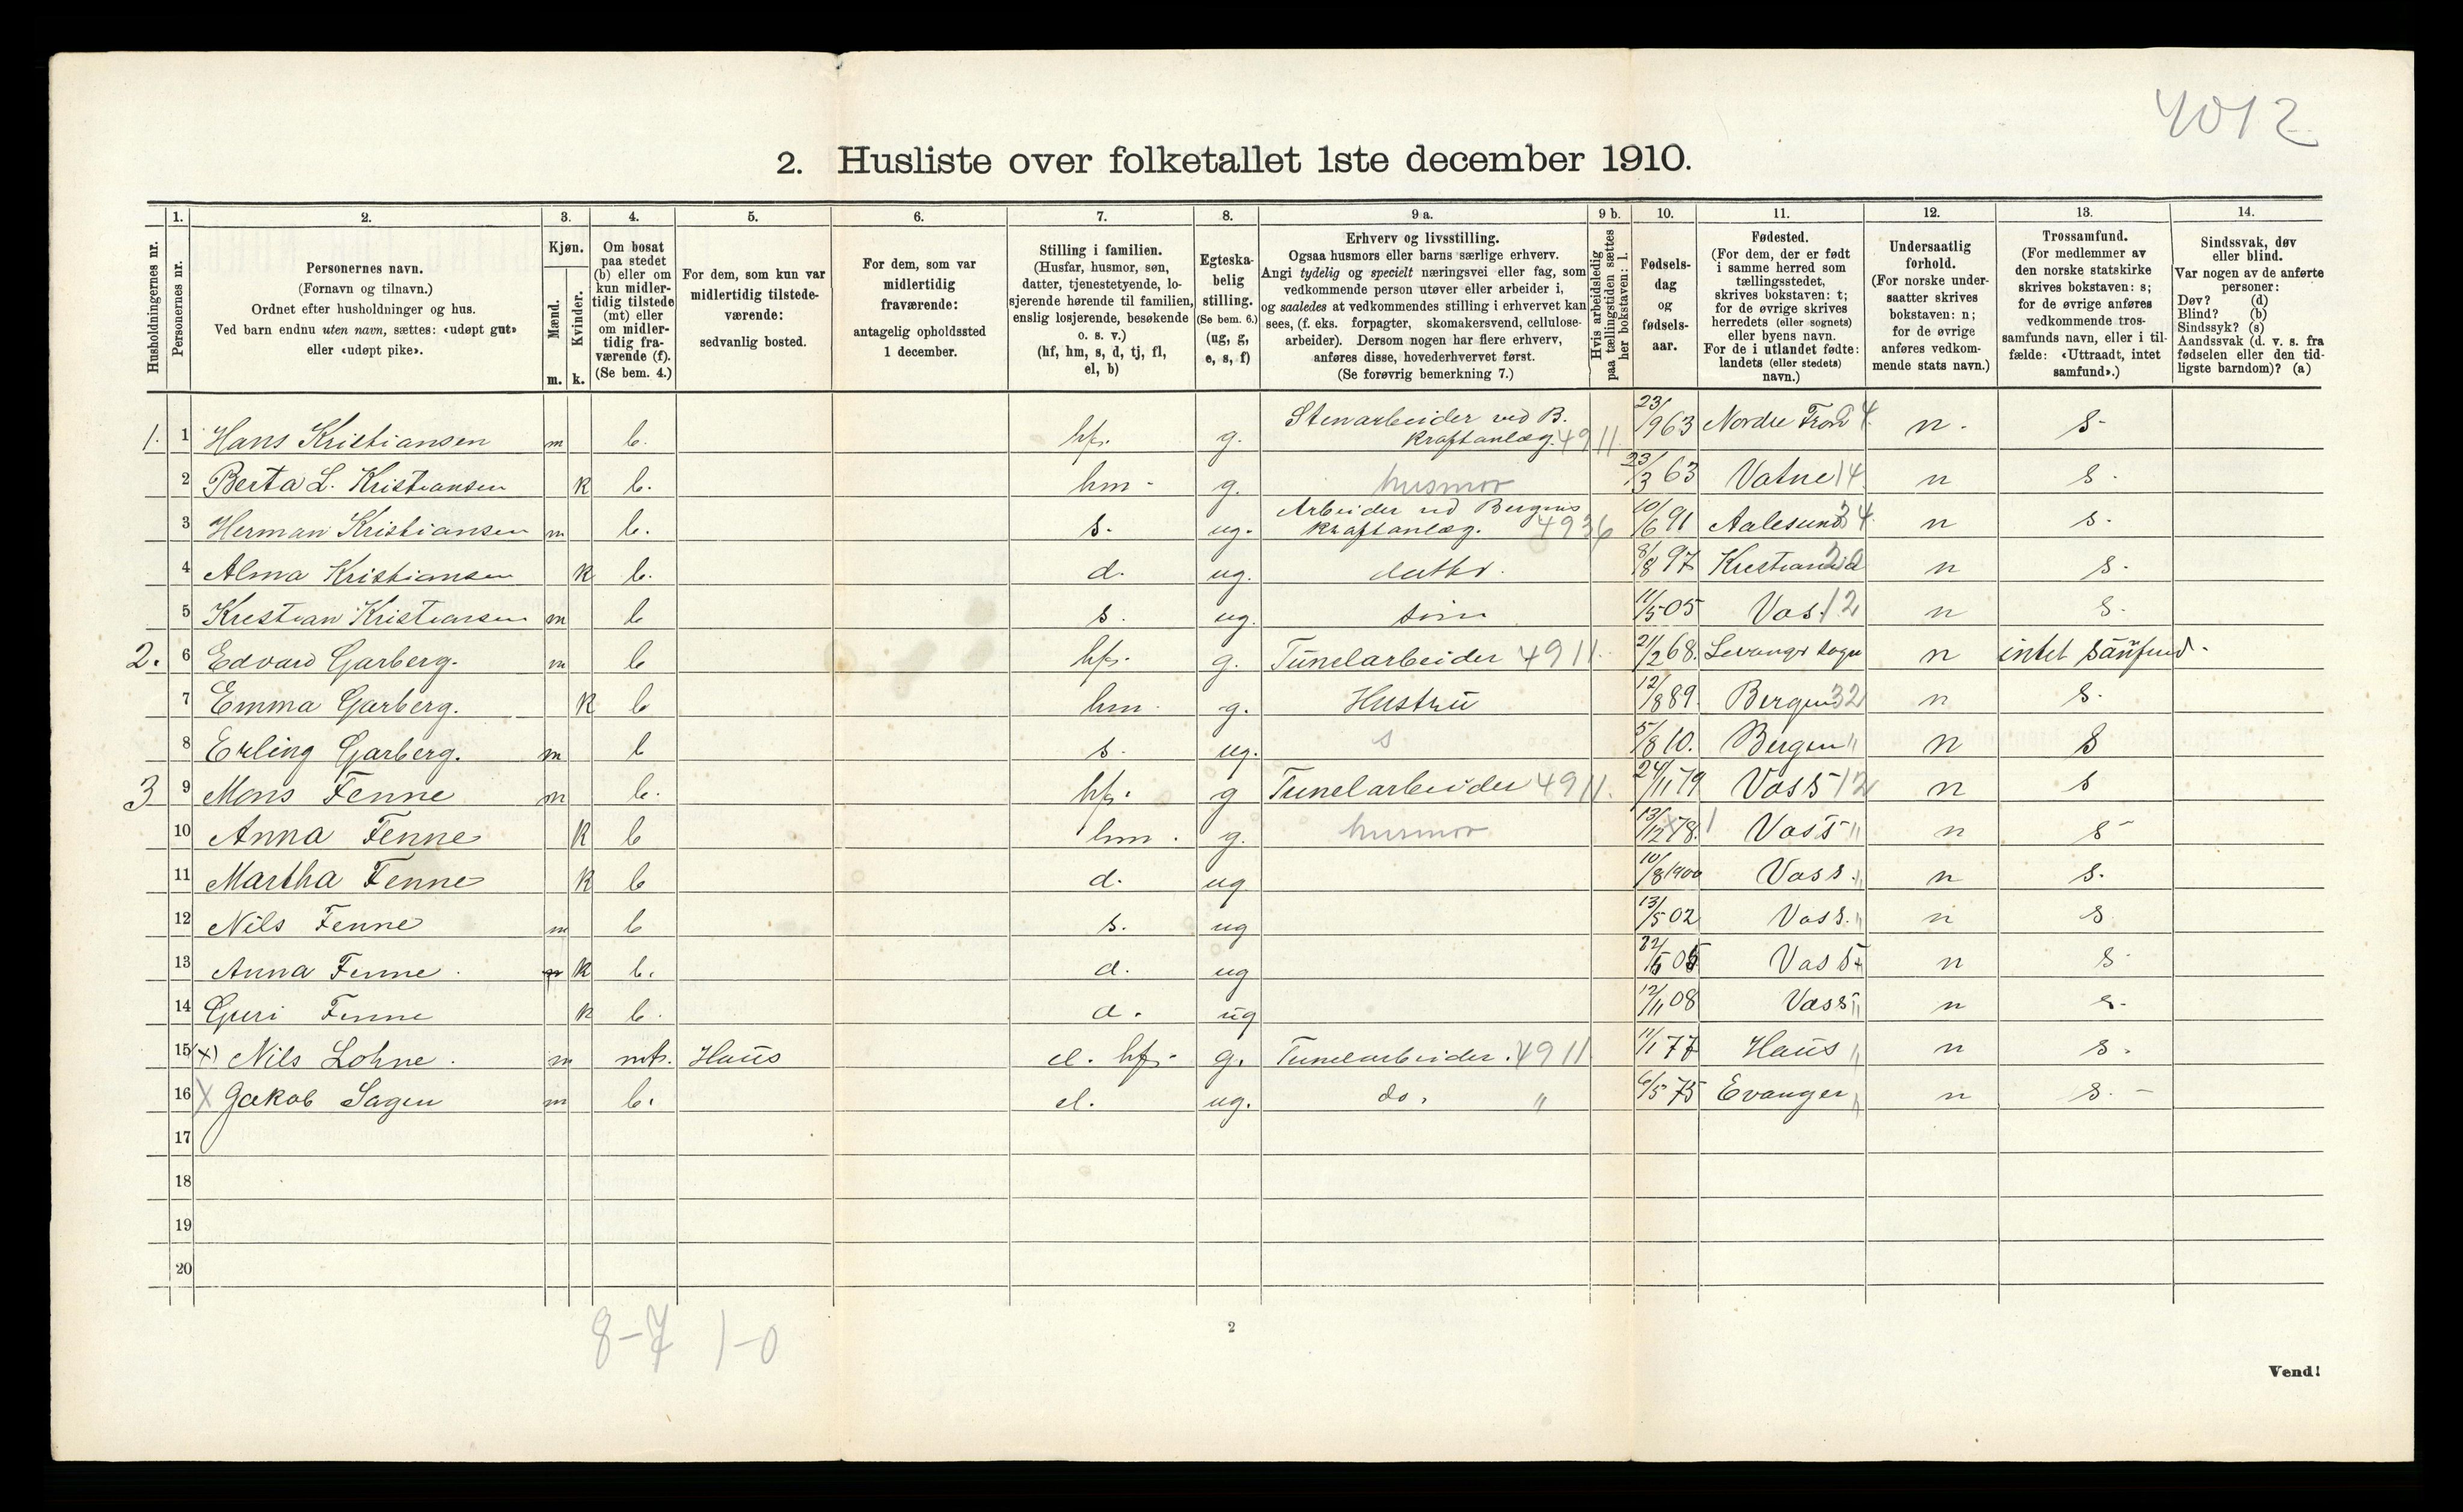 4012
2. Husliste over folketallet 1ste december 1910.
Husholdningernes nr.
1. Personernes nr.
2. Personernes navn. (Fornavn og tilnavn.) Ordnet efter husholdninger og hus. Ved barn endnu uten navn, sættes: «udøpt gut» eller «udøpt pike».
3. Kjøn. Mænd. m. Kvinder. k.
4. Om bosat paa stedet (b) eller om kun midler-tidig tilstede (mt) eller om midler-tidig fra-værende (f). (Se bem. 4.)
5. For dem, som kun var midlertidig tilstede-værende: sedvanlig bosted.
6. For dem, som var midlertidig fraværende: antagelig opholdssted 1 december.
7. Stilling i familien. (Husfar, husmor, søn, datter, tjenestetyende, lo-sjerende hørende til familien, enslig losjerende, besøkende o. s. v.) (hf, hm, s, d, tj, fl, el, b)
8. Egteska-belig stilling. (Se bem. 6.) (ug, g, e, s, f)
9 a. Erhverv og livsstilling. Ogsaa husmors eller barns særlige erhverv. Angi tydelig og specielt næringsvei eller fag, som vedkommende person utøver eller arbeider i, og saaledes at vedkommendes stilling i erhvervet kan sees, (f. eks. forpagter, skomakersvend, cellulose-arbeider). Dersom nogen har flere erhverv, anføres disse, hovederhvervet først. (Se forøvrig bemerkning 7.)
9 b. Hvis arbeidsledig paa tællingstiden sættes her bokstaven: l.
10. Fødsels-dag og fødsels-aar.
11. Fødested. (For dem, der er født i samme herred som tællingsstedet, skrives bokstaven: t; for de øvrige skrives herredets (eller sognets) eller byens navn. For de i utlandet fødte: landets (eller stedets) navn.)
12. Undersaatlig forhold. (For norske under-saatter skrives bokstaven: n; for de øvrige anføres vedkom-mende stats navn.)
13. Trossamfund. (For medlemmer av den norske statskirke skrives bokstaven: s; for de øvrige anføres vedkommende tros-samfunds navn, eller i til-fælde: «Uttraadt, intet samfund».)
14. Sindssvak, døv eller blind. Var nogen av de anførte personer: Døv? (d) Blind? (b) Sindssyk? (s) Aandssvak (d. v. s. fra fødselen eller den tid-ligste barndom)? (a)
1. 1 Hans Kristiansen m b. hf. g. Stenarbeider ved B. Kraftanlæg. 4911 23/9 63 Nordre n. s.
2 Berta L. Kristiansen k b. hm g. husmor 23/3 63 Vatne 14 n s.
3 Herman Kristiansen m b. s. ug. Arbeider ved Bergens Kraftanlæg. 4936 10/6 91 Aalesund 34 n s.
4 Alma Kristiansen k b. d. ug. datter. 8/8 97 n s.
5 Krestian Kristiansen m b s. ug. sön 11/5 05 Vos. 12 n s.
2. 6 Edvard Garberg. m b hf. g. Tunelarbeider 4911. 21/2 68. Levanger sogn n intet samfund.
7 Emma Garberg. k b hm g. Hustru 12/8 89. Bergen 32 n s.
8 Erling Garberg. m b s. ug. s 5/8 10. Bergen " n s
3 9 Mons Fenne m b. hf. g Tunelarbeider 4911. 24/11 79 Voss 12 n s
10 Anna Fenne k b hm. g. husmor 13/12 78. Voss " n s
11 Martha Fenne k b d. ug 10/8 1900 Voss. " n s.
12 Nils Fenne m b s. ug 13/5 02 Voss. " n s
13 Anna Fenne. k b. d. ug Voss n s
14 Guri Fenne k b. d. ug 12/11 08 Voss " n s.
15 x) Nils Lohne. m mt. Haus el. hf. g. Tunelarbeider. 4911 11/1 77 Haus " n s.
16 X Jakob Sagen m b. el. ug. do. " 6/5 75 Evanger " n s.
17
18
19
20
8-7 1-0
2
Vend!